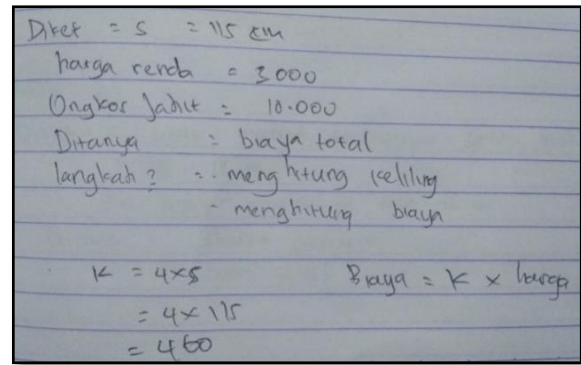 Diket = S = 115 cm
harga renda = 3000
Ongkos Jahit = 10.000
Ditanya : biaya total
langkah? = - menghitung keliling
- menghitung biaya
K = 4×s Biaya = K × harga
= 4 × 115
= 460